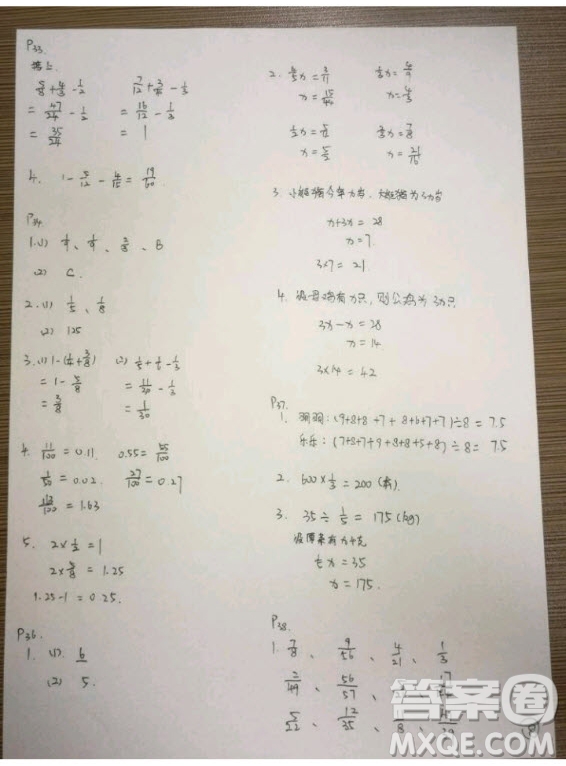 P33.
5/8+4/3-1/2  7/12+3/4-1/3
=47/24-1/2  =16/12-1/3
=35/24  =1
4. 1-5/12-4/15=19/60
P34
1.(1) 1/4、1/4、3/8、B
(2) C.
2.(1) 1/5、1/8
(2) 125
3.(1) 1-(1/4+3/8)  (2) 1/5+1/6-1/3
=1-5/8  =11/30-1/3
=3/8  =1/30
4. 11/100=0.11  0.55=55/100
1/50=0.02  27/100=0.27
163/100=1.63
5. 2×1/2=1
2×5/8=1.25
1.25-1=0.25.
P36.
1. (1). 6
(2) 5.
2.
x=15/44  x=4/3
x=5/3  x=21/16
3. 小娅娅今年x岁,
x+3x=28
x=7.
3×7=21
4. 设母鸡有x只,则公鸡为3x只
3x-x=28
x=14.
3×14=42
P37.
1. 明明:(9+8+8+7+8+6+7+7)÷8=7.5
乐乐:(7+8+7+9+8+8+5+8)÷8=7.5
2. 600×1/3=200(本).
3. 35÷1/5=175(kg)
设原来有x千克
1/5x=35
x=175.
P38.
1. 7/8、9/56、4/21、1/3
2/49、56/57
5/22、12/35
答案圈
MXQE.COM